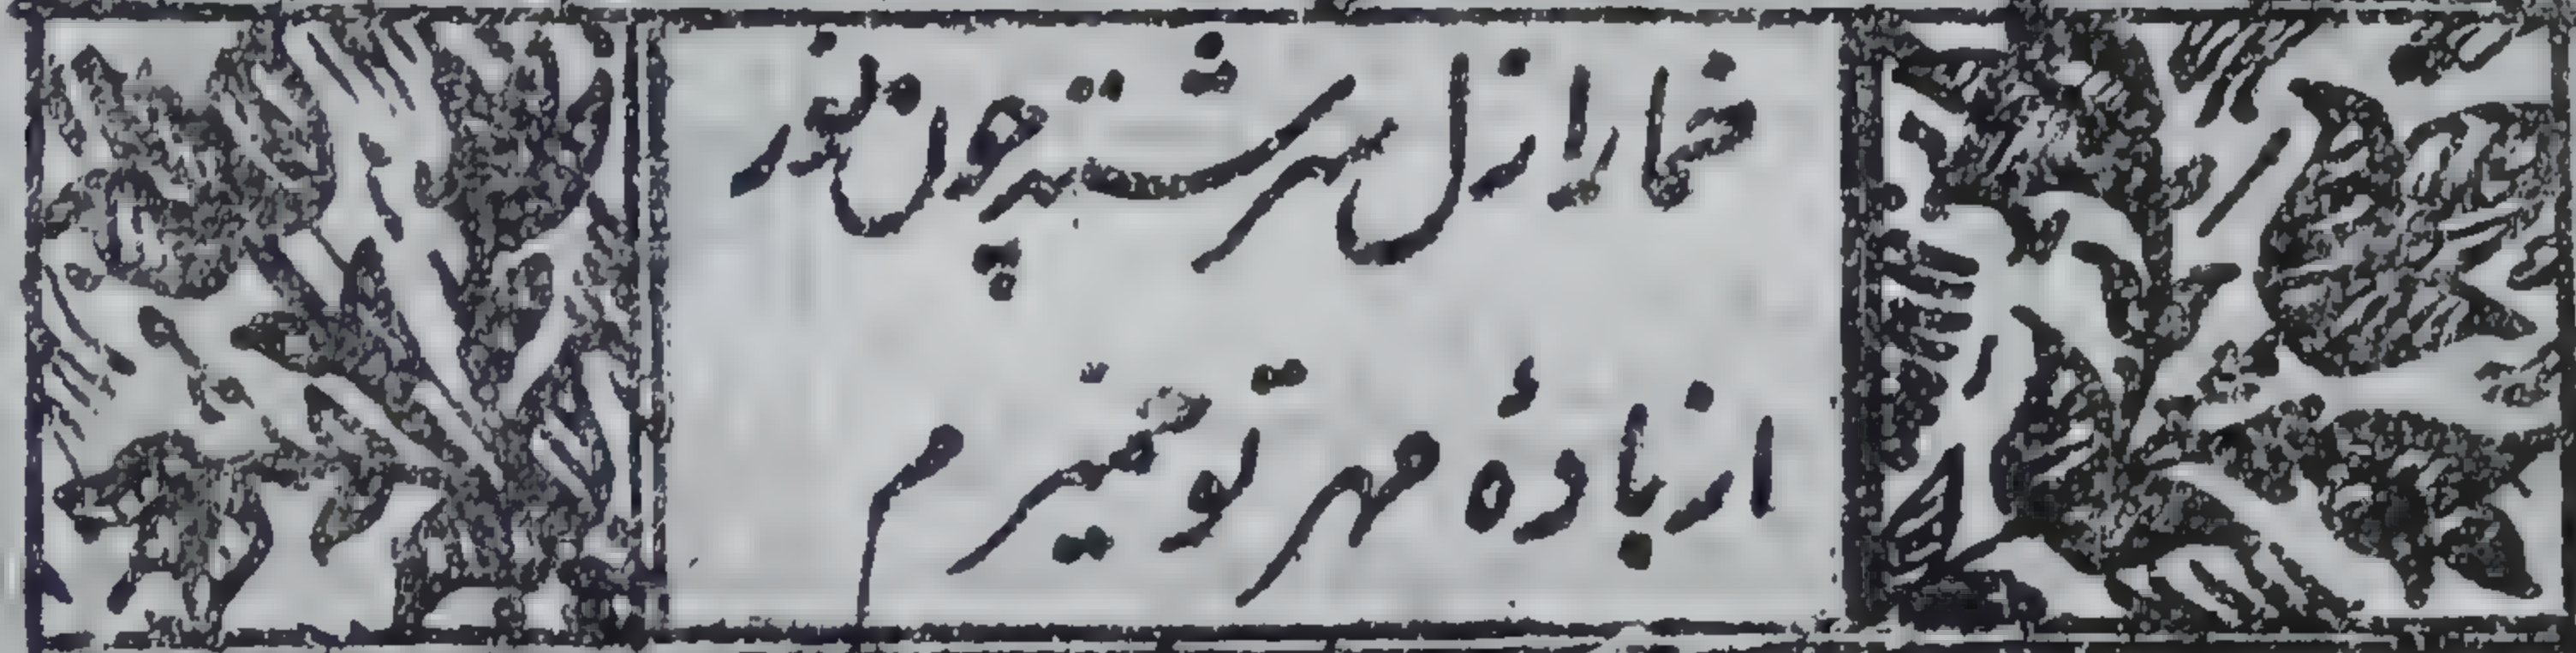 خمارا ازل سرشته چون نور
از بادهٔ مهر تو خمیرم